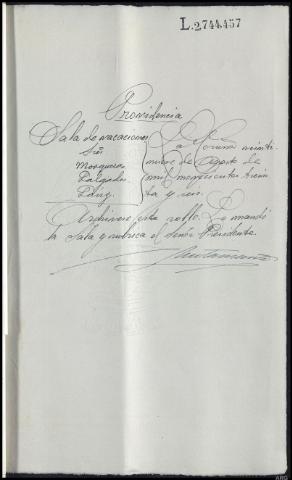 L.2,744,457
Providencia
Sala de vacaciones
Srs
Mosquera
Delgado
La Coruña veinti
nueve de Agosto de
mil novecientos trein
ta y seis.
Archívese este rollo. Lo mandó
la Sala y rubrica el señor Presidente.